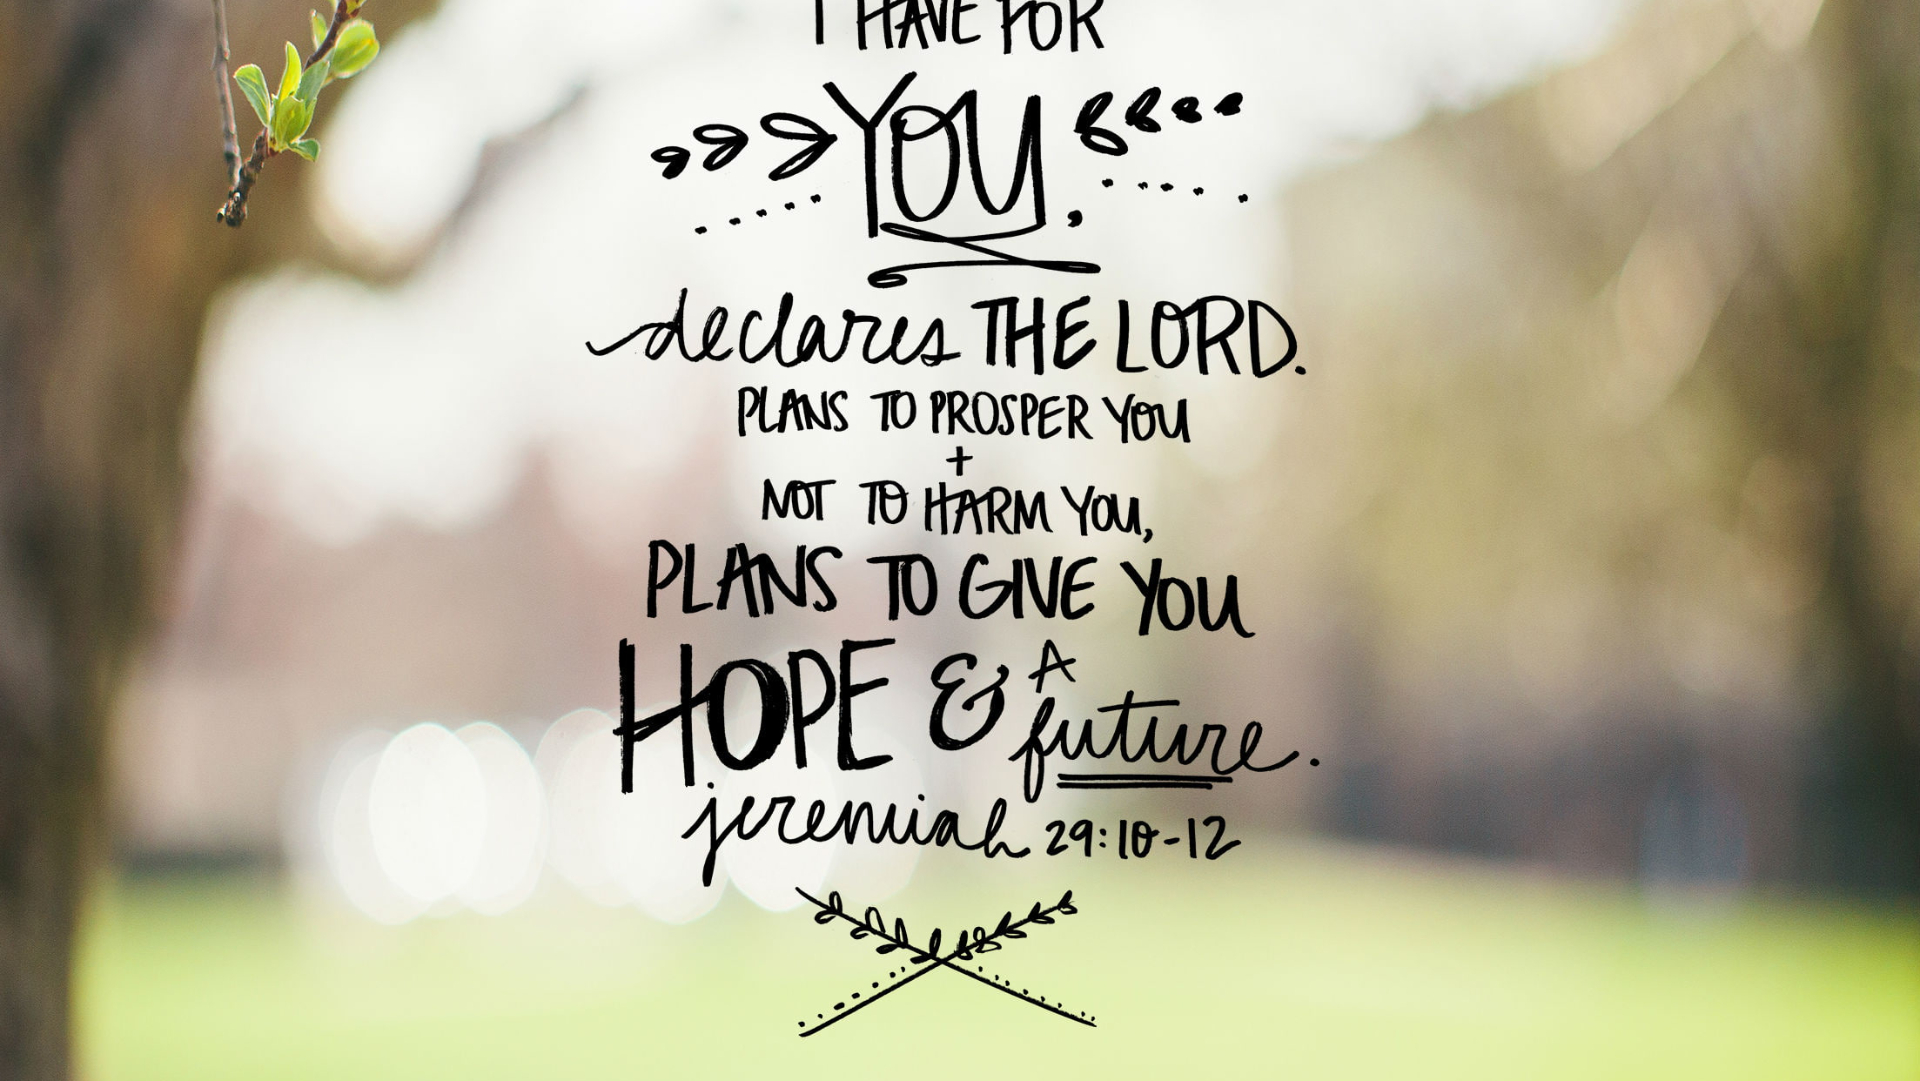 I HAVE FOR
YOU,
declares THE LORD.
PLANS TO PROSPER YOU
+
NOT TO HARM YOU,
PLANS TO GIVE YOU
HOPE & A
future.
jeremiah 29:10-12